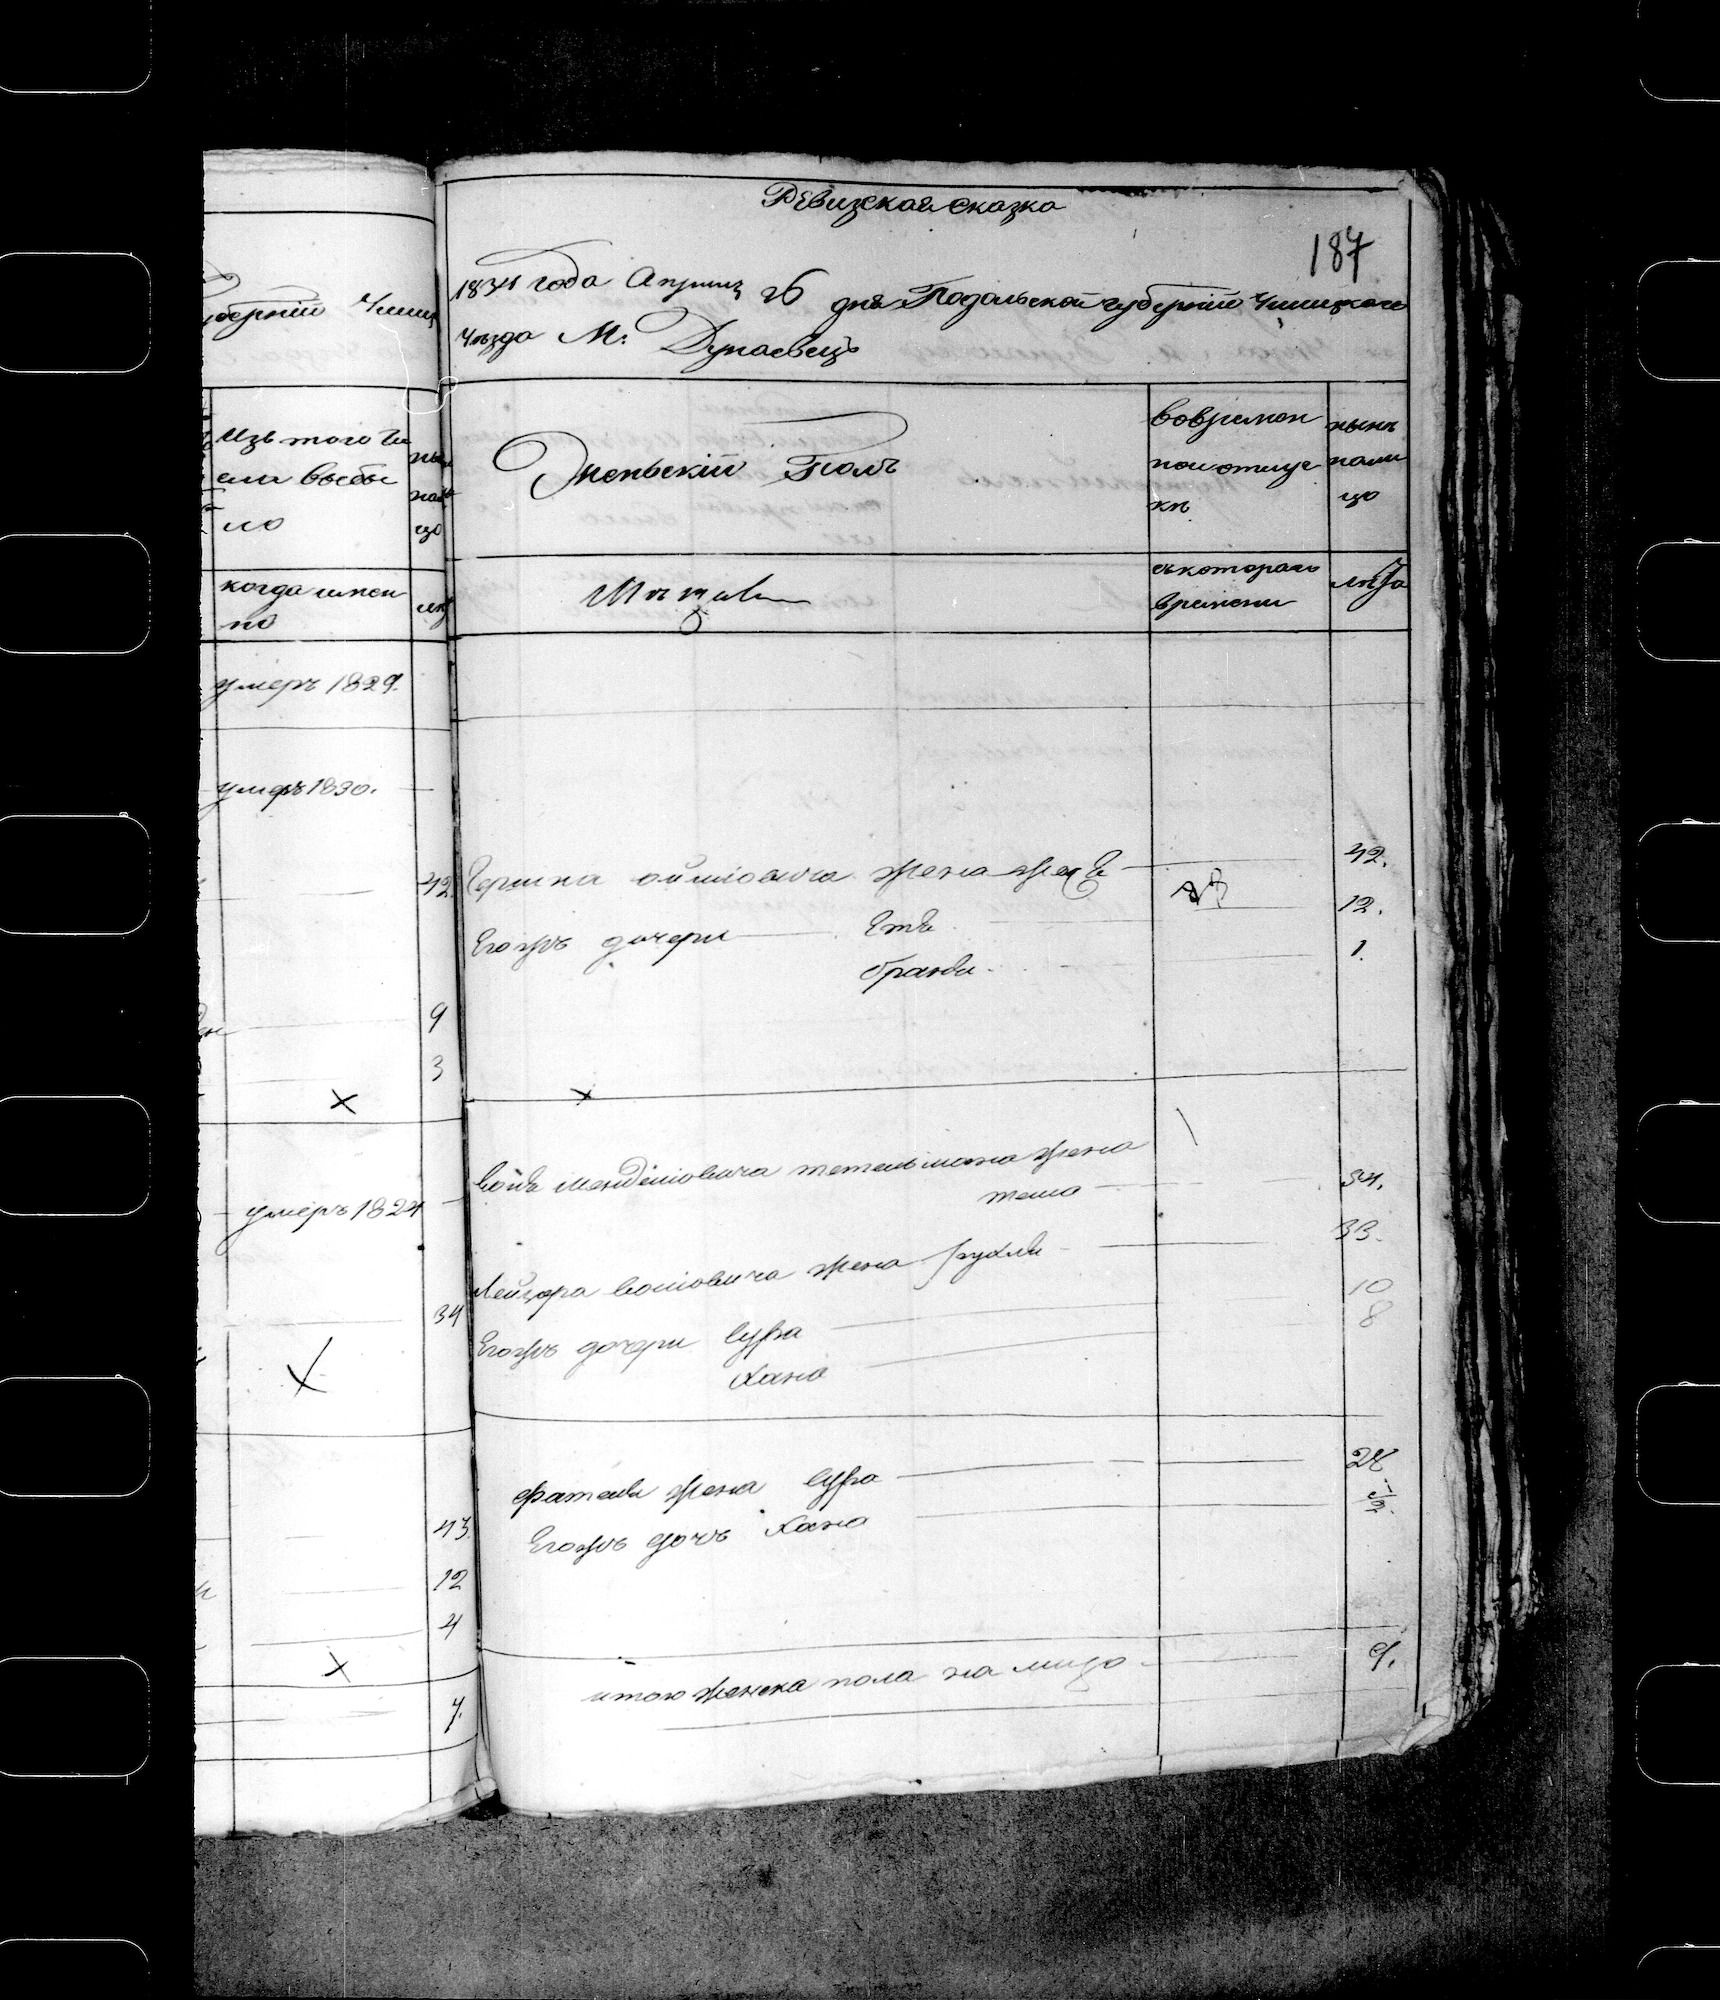 Ревизская сказка
187
1834 года Априля 26 дня Подольской губерніи Ушицкого
уезда М. Дунаевецъ
губерніи Ушиц
Изъ того чи
сла выбы
ло
ны
нѣ
цо
когда имен
но
умеръ 1829.
умеръ 1830.
42
9
3
умеръ 1824
34
43.
12
4
7.
Женьскій Полъ
вовремен
ной отлуч
кѣ
нынѣ
нали
цо
Мѣщане
съ котораго
времени
лѣта
Гершка жена 42.
Егожъ дочери Етя 12.
бранда 1.
Менделіовича тетельмана жена
34.
Лейзора жена рухля 33.
Егожъ дочери Сура 10
Хана 8
жена Сура 24
Егожъ дочь Хана 1/2.
итого женска пола на лицо 9.